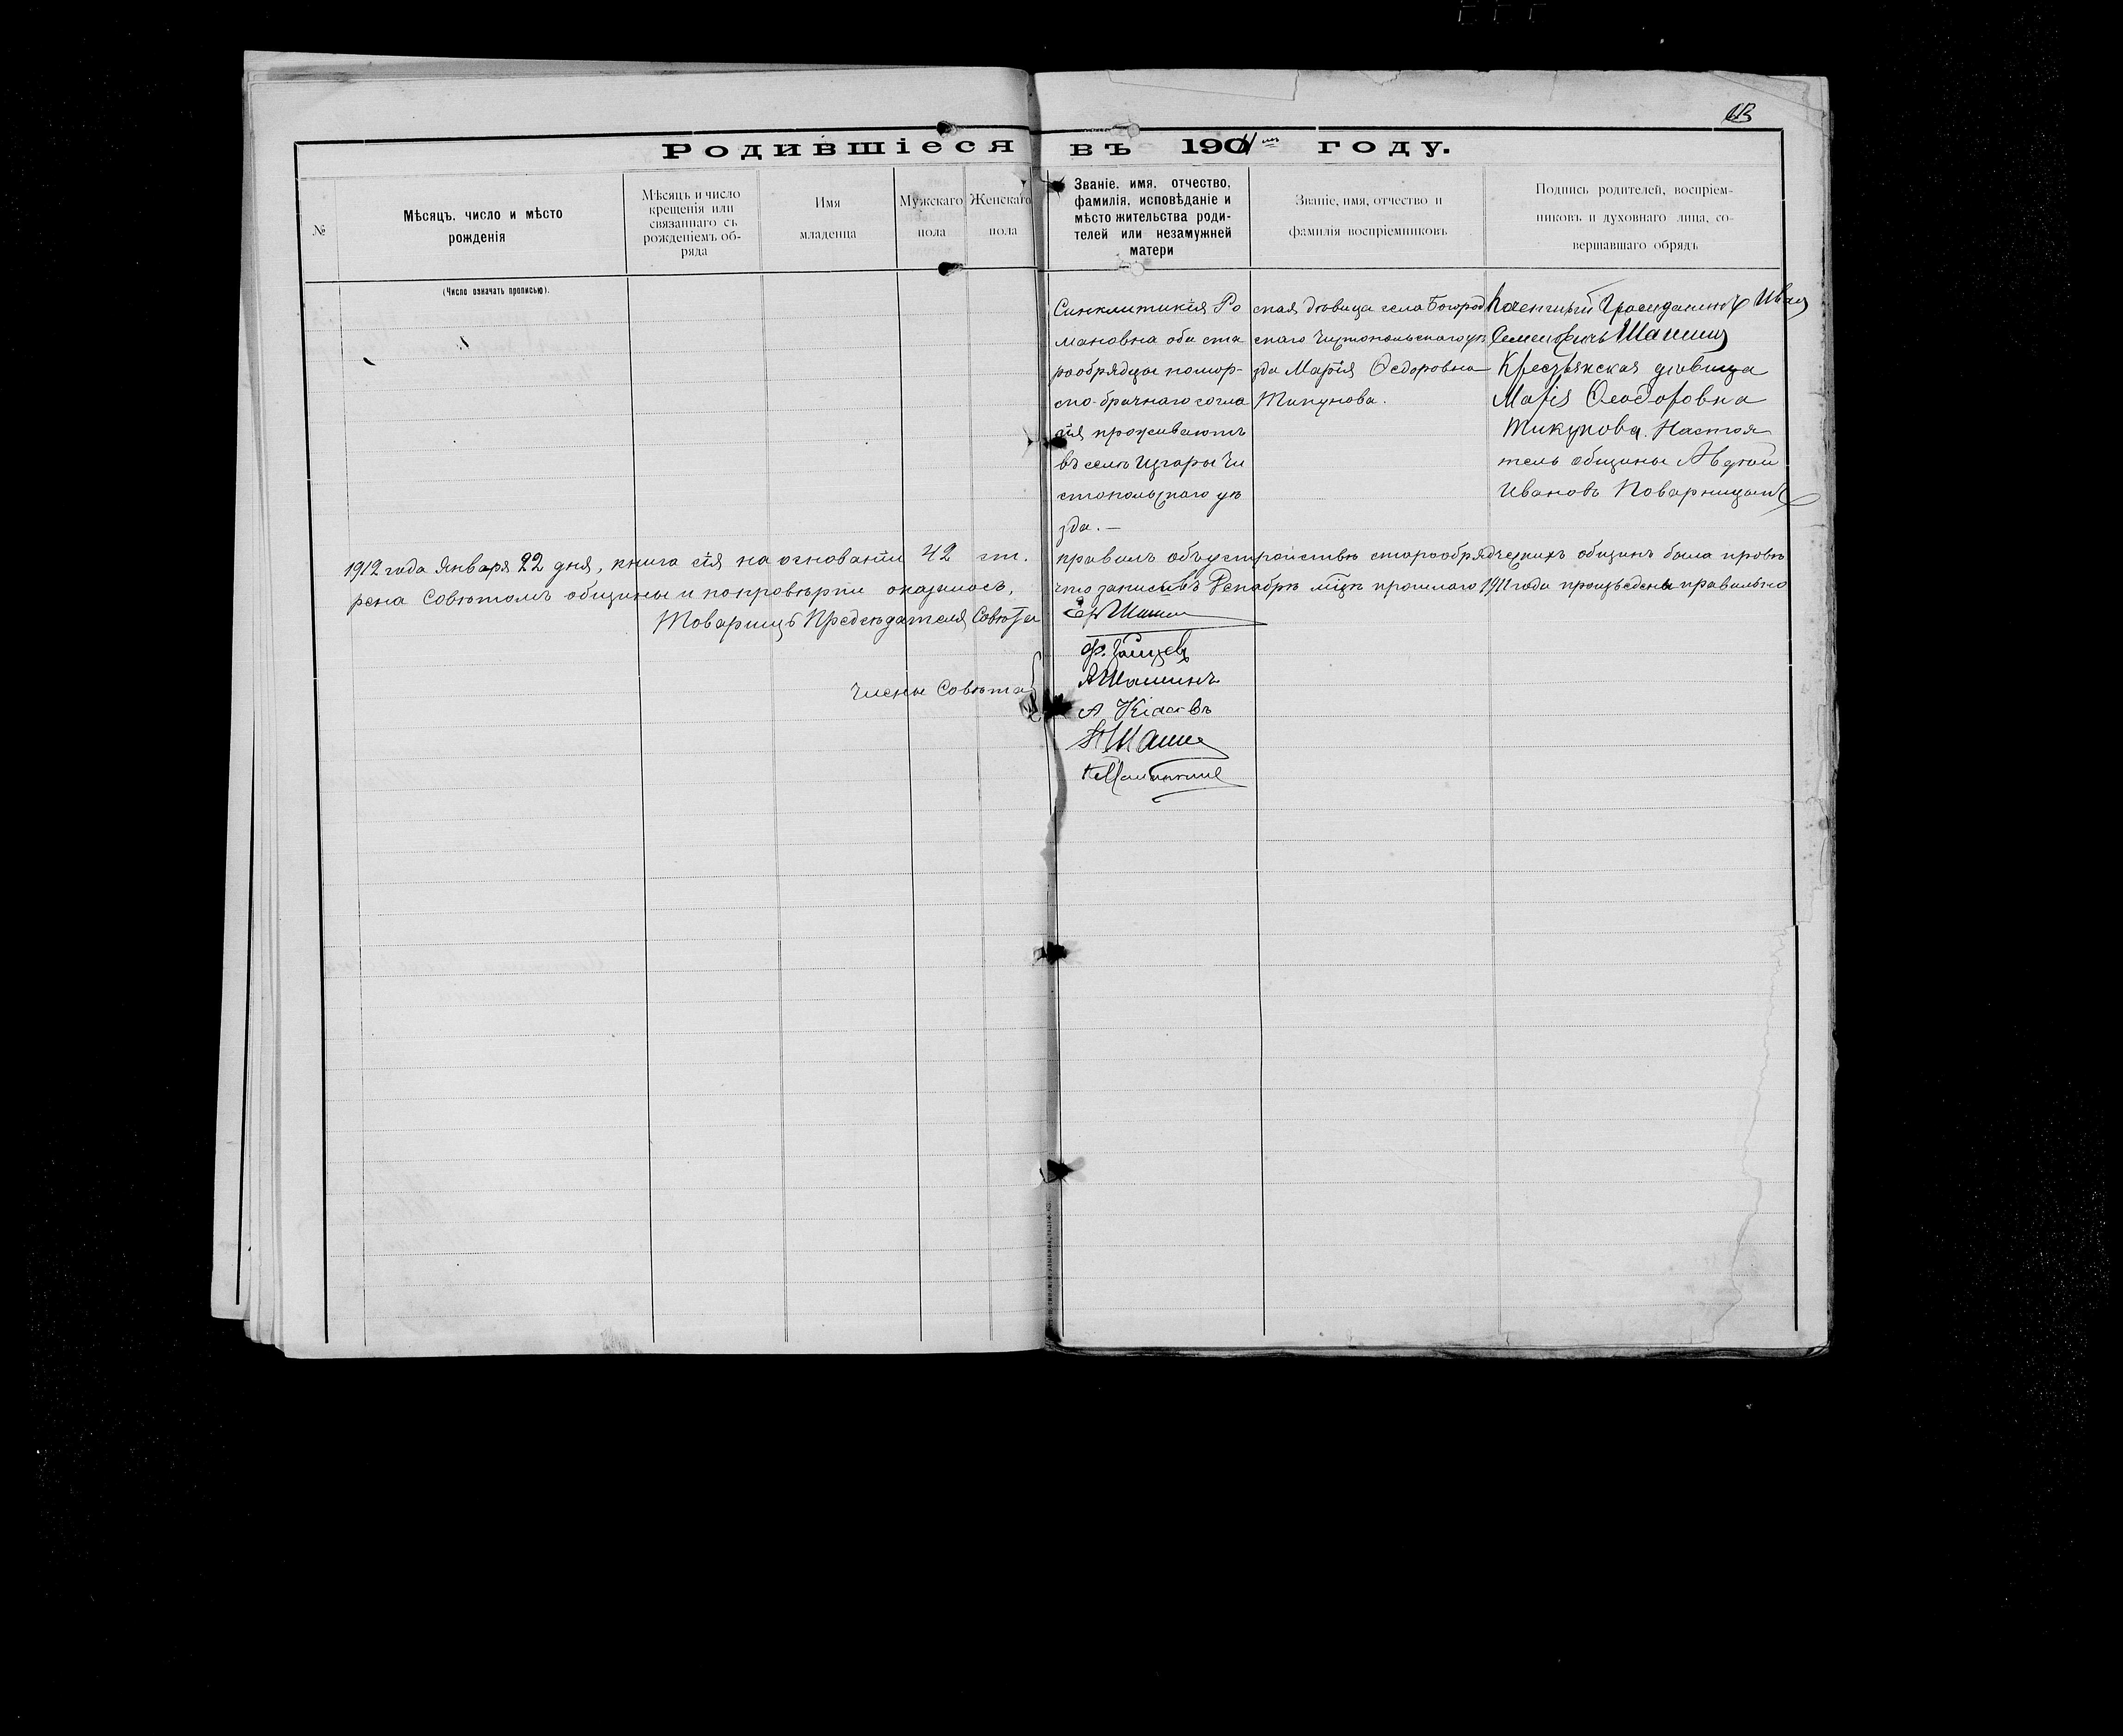 Родившіеся въ 1911 году.
№
Мѣсяцъ, число и мѣсто
рожденія
Мѣсяцъ и число
крещенія или
связаннаго съ
рожденіемъ об-
ряда
Имя
младенца
Мужскаго
пола
Женскаго
пола
Званіе, имя, отчество,
фамилія, исповѣданіе и
мѣсто жительства роди-
телей или незамужней
матери
Званіе, имя, отчество и
фамилія воспріемниковъ
Подпись родителей, воспріем-
никовъ и духовнаго лица, со-
вершавшаго обрядъ
(Число означать прописью).
Синклитикія Ро
мановна оба ста
рообрядцы помор-
ско-брачнаго согла
сія проживаютъ
въ селѣ Изгары Чи
стопольскаго уѣ
зда. —
ская дѣвица села Богород
скаго Чистопольскаго уѣ
зда Марія Ѳедоровна
Тикунова.
Почетный Гражданинъ Иван
Семеновичъ Шашин
Крестьянская дѣвица
Марія Ѳеодоровна
Тикунова. Настоя
тель общины Авдѣй
Ивановъ Поварницынъ
1912 года Января 22 дня, книга сія на основаніи 42 ст. правилъ объ устройствѣ старообрядческихъ общинъ была провѣ
рена Совѣтомъ общины и по провѣркѣ оказалось, что записи въ Декабрѣ мцѣ прошлаго 1911 года произведены правильно
Товарищъ Предсѣдателя Совѣта
Члены Совѣта
А Шашинъ